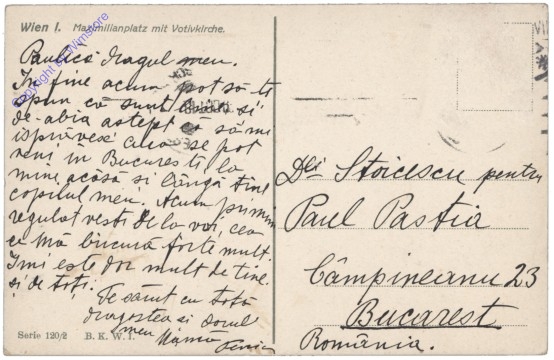 Wien I. Maximilianplatz mit Votivkirche.
Copyright by Wimstore
Paulică dragul meu.
In fine acum pot să-ti
spun că sunt bine si
de-abia astept să să mi
isprăvesc cura se pot
veni in Bucuresti la
mine acăsă si lângă tine
copilul meu. Acum primim
regulat vesti de la voi, cea
ce mă bucură forte mult.
Imi este dor mult de tine
si de toti.
Te sărut cu totă
dragostea si dorul
meu Mama
Dlei Stoicescu pentru
Paul Pastia
Câmpineanu 23
Bucarest
România.
Serie 120/2 B. K. W. I.